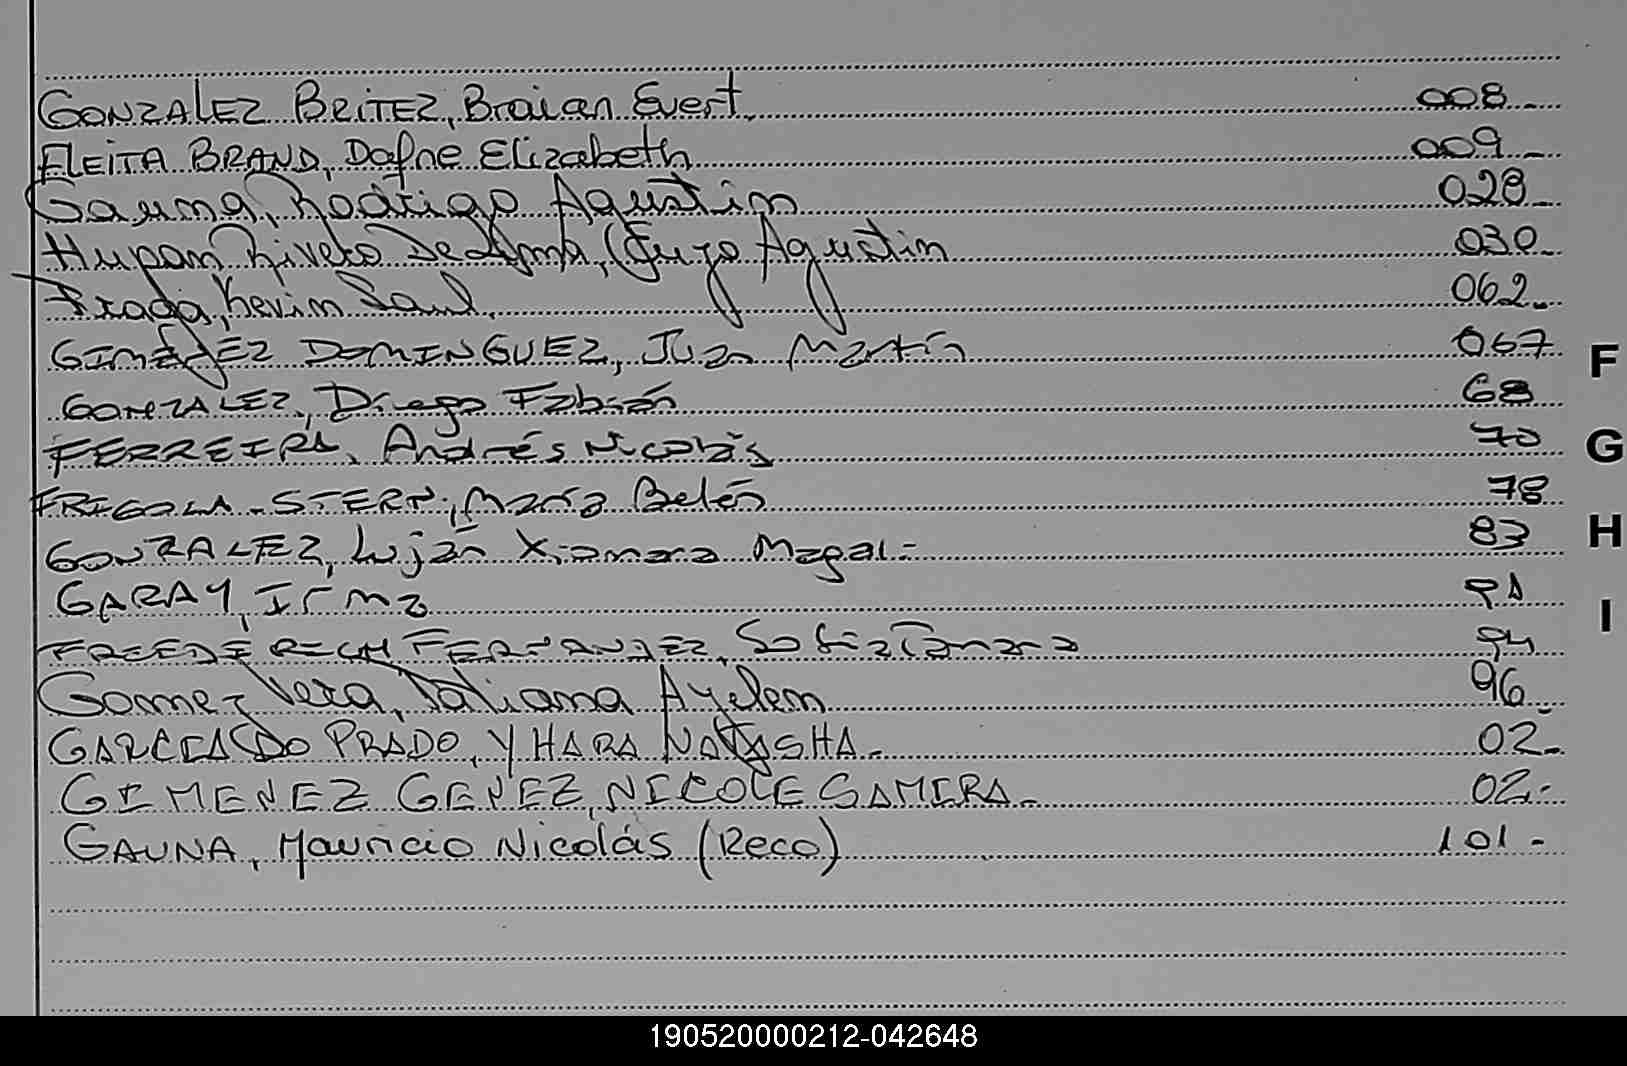 GONZALEZ BRITEZ, Braian Evert. 008-
FLEITA BRAND, Dafne Elizabeth 009-
Gauna, Rodrigo Agustin 028-
Hupan Rivero De Lima, Enzo Agustin 030-
Fraga, Kevin Saul. 062-
GIMÉNEZ DOMINGUEZ, Juan Martín 067
GONZALEZ, Diego Fabián 68
FERREIRA, Andrés Nicolás 70
FRIGOLA-STERN, María Belén 78
GONZALEZ, Luján Xiomara Magali- 83
GARAY, Irma 91
FERNANDEZ, Sofia Tamara 94
Gomez Vera, Tatiana Ayelem 96
GARCIA DO PRADO, YHARA NATASHA- 02-
GIMENEZ GENEZ, NICOLE SAMIRA- 02-
GAUNA, Mauricio Nicolás (Reco) 101-
F
G
H
I
190520000212-042648